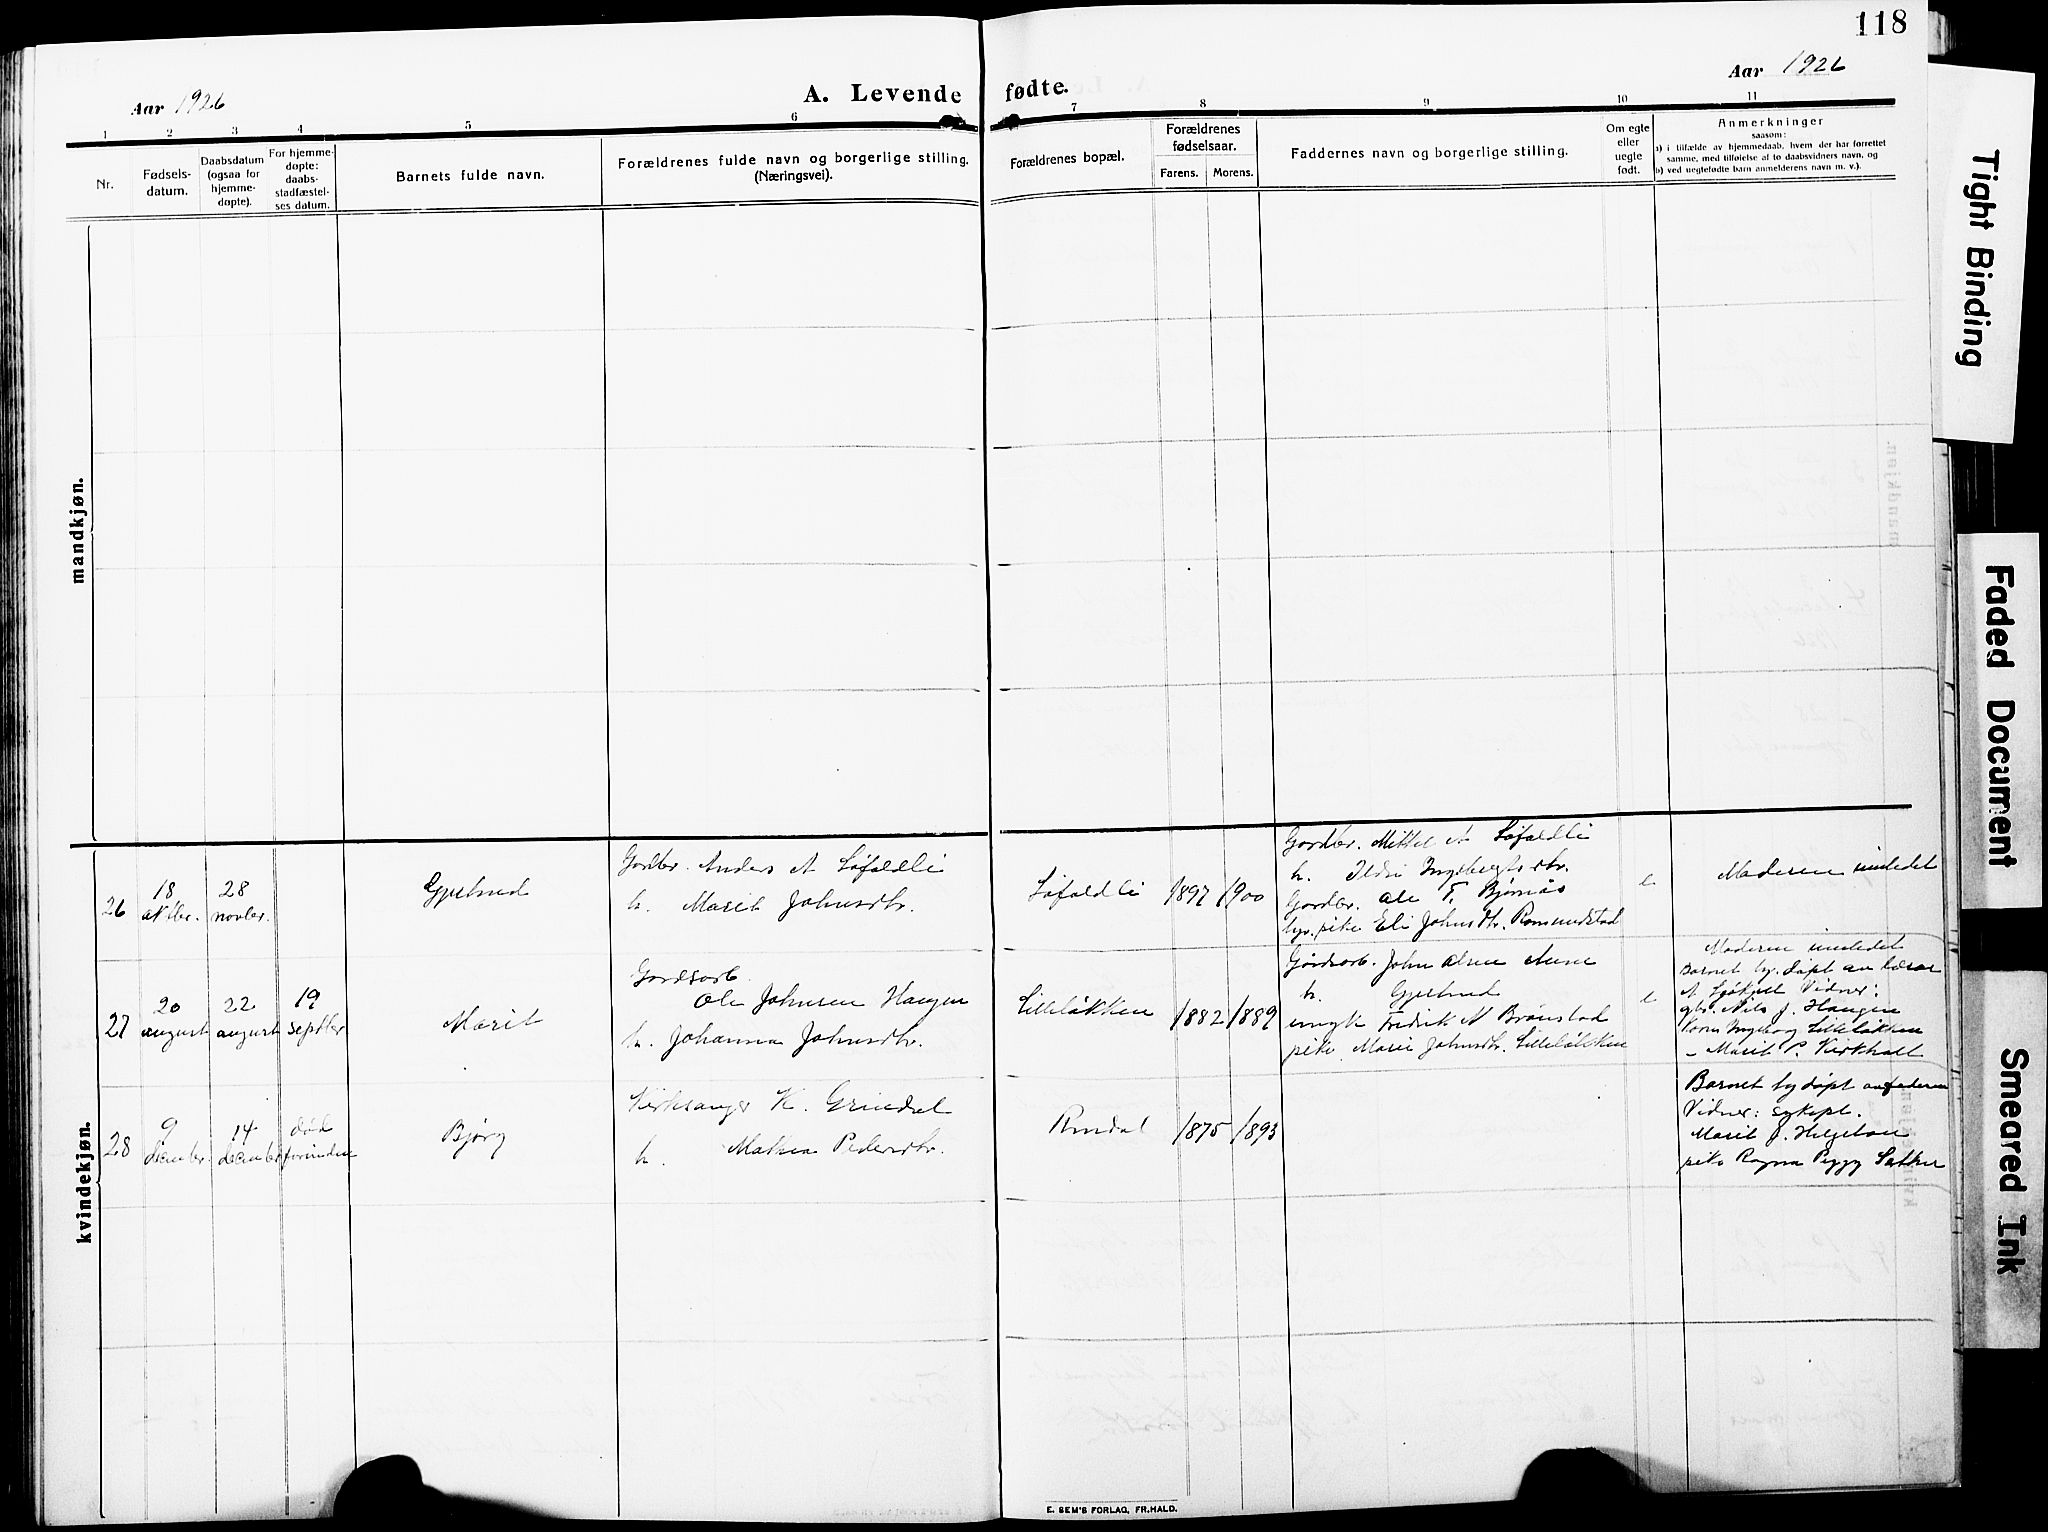 118
Aar 1926
A. Levende
fødte.
Aar 1926
1
2
3
4
5
6
7
8
9
10
11
Nr.
Fødsels-
datum.
Daabsdatum
(ogsaa for
hjemme-
døpte).
For hjemme-
døpte:
daabs-
stadfæstel-
ses datum.
Barnets fulde navn.
Forældrenes fulde navn og borgerlige stilling.
(Næringsvei).
Forældrenes bopæl.
Forældrenes
fødselsaar.
Farens.
Morens.
Faddernes navn og borgerlige stilling.
Om egte
eller
uegte
født.
Anmerkninger
saasom:
a) i tilfælde av hjemmedaab, hvem der har forrettet
samme, med tilføielse af to daabsvidners navn, og
b) ved uegtefødte barn anmelderens navn m. v.).
mandkjøn.
kvindekjøn.
26
18
oktbr.
28
novbr.
Gjertrud
Gardbr. Anders A Løfaldli
h. Marit Johnsdtr.
Løfaldli
1897
1900
Gardbr. Mikkel A Løfaldli
h. Ildri Ingebrigtsdtr.
Gardbr. Ole T. Bjørnås
hyr. pike Eli Johnsdtr. Romundstad
e
Moderen innledet
27
20
august
22
august
19
septbr
Marit
Gardsarb.
Ole Johnsen Haugen
h. Johanna Johnsdtr.
Lilleløkken
1882
1889
Gårdsarb. John Olsen Aune
h. Gjertrud
ungk Fredrik A Brønstad
pike Marie Johnsdtr. Lilleløkken
e
Moderen innledet
Barnet hj. døpt av lærer
Vidner:
gbr. Nils J. Haugen
Ingeborg Lilleløkken
- Marit P. Kirkholt
28
9
decembr.
14
decembr
død
forinden
Bjørg
Kirkesanger K. Grindal
h. Mathea Pedersdtr.
Rindal
1875
1893
Barnet hj døpt av faderen
Vidner: sykepl.
Marit J. Helgetun
pike Ragna Peggy Sæther
E. SEM'S FORLAG, FR.HALD.
Tight Binding
Faded Document
Smeared Ink